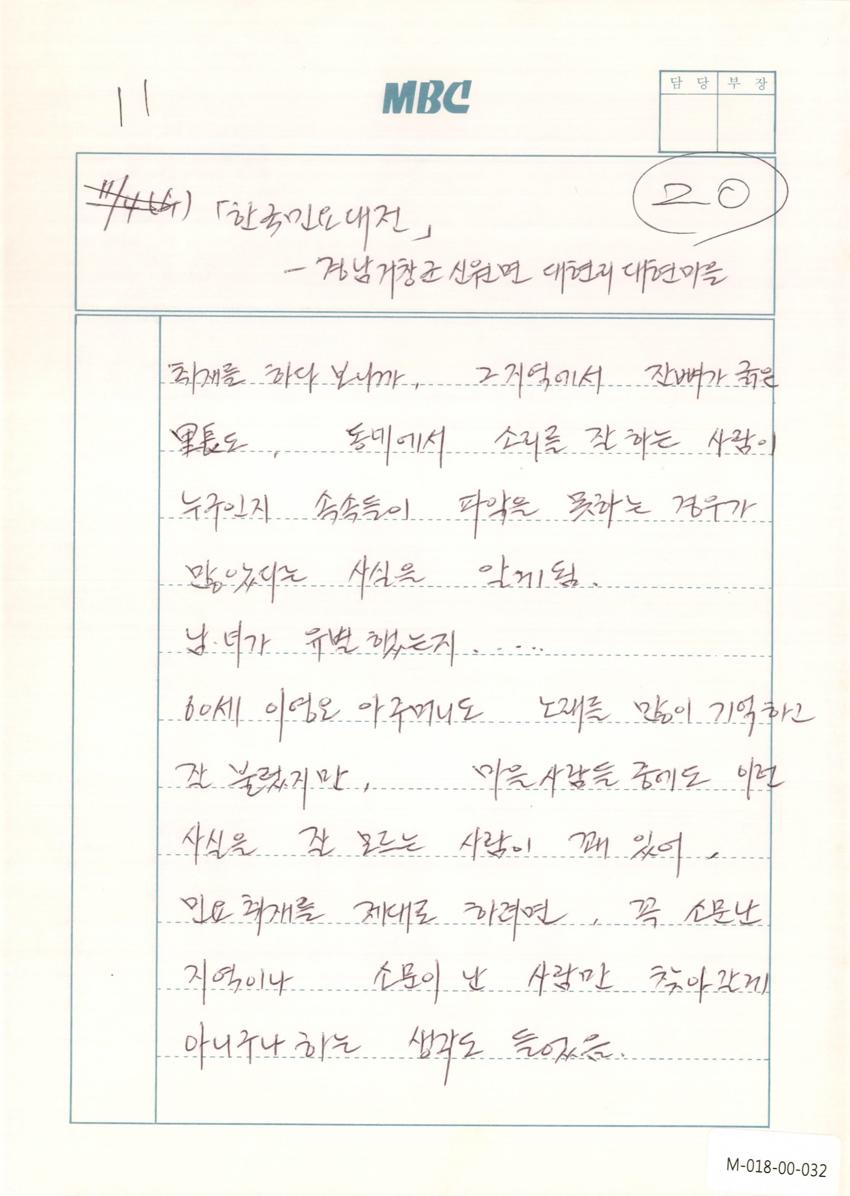 11
MBC
담 당 부 장
11/4 (수) 「한국민요대전」
20
- 경남거창군 신원면 대현리 대현마을
취재를 하다 보니까, 그지역에서 잔뼈가 굵은
里長도, 동네에서 소리를 잘 하는 사람이
누구인지 속속들이 파악을 못하는 경우가
많았다는 사실을 알게됨.
남·녀가 유별했는지.....
60세 이영오 아주머니도 노래를 많이 기억하고
잘 불렀지만, 마을사람들 중에도 이런
사실을 잘 모르는 사람이 꽤 있어,
민요취재를 제대로 하려면, 꼭 소문난
지역이나 소문이 난 사람만 찾아갈게
아니구나하는 생각도 들었음.
M-018-00-032